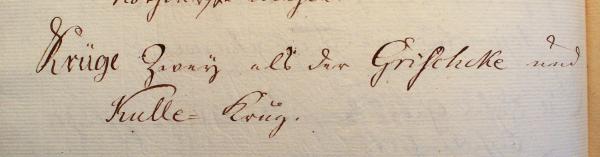 Krüge Zwey als der Grischcke und
Kulle= Krug.